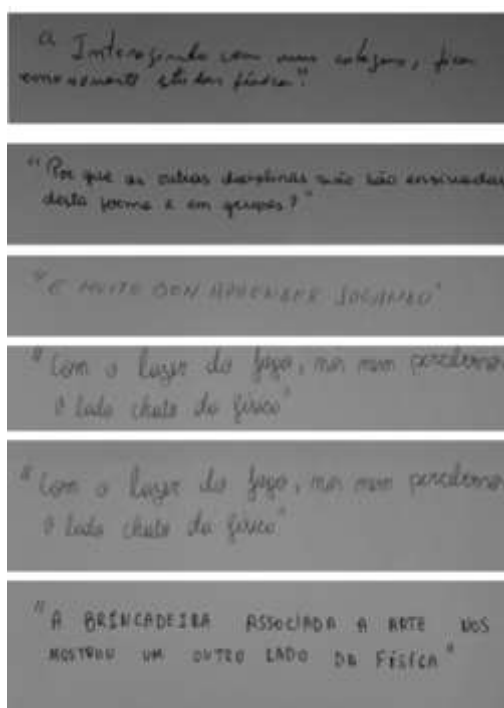 Interagindo com meus colegas, ficou
estudar física".
"Por que as outras disciplinas não são ensinadas
desta forma e em grupos?"
"É MUITO BOM APRENDER JOGANDO"
"Com o lazer do jogo, nós nem percebemos
o lado chato da física"
"Com o lazer do jogo, nós nem percebemos
o lado chato da física"
"A BRINCADEIRA ASSOCIADA A ARTE NOS
MOSTROU UM OUTRO LADO DA FÍSICA"